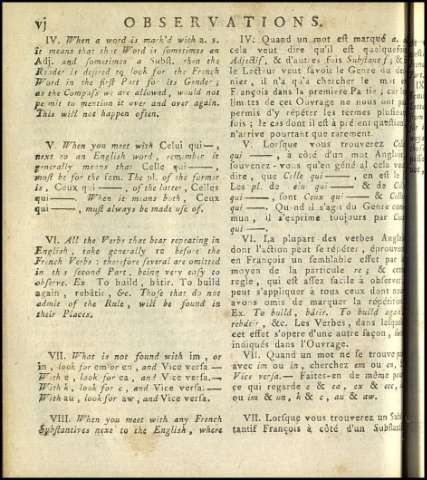 vj OBSERVATIONS.
IV. When a word is mark'd with a. s.
it means that this Word is sometimes an
Adj. and sometimes a Subst. then the
Reader is desired to look for the French
Word in the first Part for its Gender;
as the Compass we are allowed, would not
permit to mention it over and over again.
This will not happen often.
V. When you meet with Celui qui —,
next to an English word, remember it
generally means that Celle qui ———,
must be for the fem. The pl. of the former
is, Ceux qui ———, of the latter, Celles
qui ———. When it means both, Ceux
qui ———, must always be made use of.
VI. All the Verbs that bear repeating in
English, take generally re before the
French Verbs: therefore several are omitted
in this second Part, being very easy to
observe. Ex. To build, bâtir. To build
again, rebâtir, &c. Those that do not
admit of the Rule, will be found in
their Places.
VII. What is not found with im, or
in, look for em or en, and Vice versa.—
With e, look for ea, and Vice versa.—
With k, look for c, and Vice versa.
With au, look for aw, and Vice versa.
VIII. When you meet with any French
Substantives next to the English, where
IV. Quand un mot est marqué a.
cela veut dire qu'il est quelquefois
Adjectif, & d'autres fois Substantif; &
le Lecteur veut savoir le Genre du
il n'a qu'à chercher le
François dans la premiere Partie; car
limites de cet Ouvrage ne nous ont
permis d'y répéter les termes plusieurs
fois; le cas dont il est à présent question
n'arrive pourtant que rarement.
V. Lorsque vous trouverez
qui ———, à côté d'un mot Anglois
souvenez-vous qu'en général cela veut
dire, que Celle qui ———, en est le
Les pl. de qui ——— & de
qui ———, sont Ceux qui ——— &
qui ———. Quand il s'agit du Genre com-
mun, il s'exprime toujours par
qui ———.
VI. La plupart des verbes Anglois
dont l'action peut se répéter, éprouvent
en François un semblable effet par
moyen de la particule re; &
regle, qui est assez facile à observer
peut s'appliquer à tous ceux dont nous
avons omis de marquer la répétition.
Ex. To build, bâtir. To build again,
rebâtir, &c. Les Verbes, dans lesquels
cet effet s'opere d'une autre façon,
indiqués dans l'Ouvrage.
VII. Quand un mot ne se trouve pas
avec im ou in, cherchez em ou en,
Vice versa.— Faites-en de même
ce qui regarde e & ea, &
ou im & un, k & c, au & aw.
VII. Lorsque vous trouverez un
tantif François à côté d'un Substantif